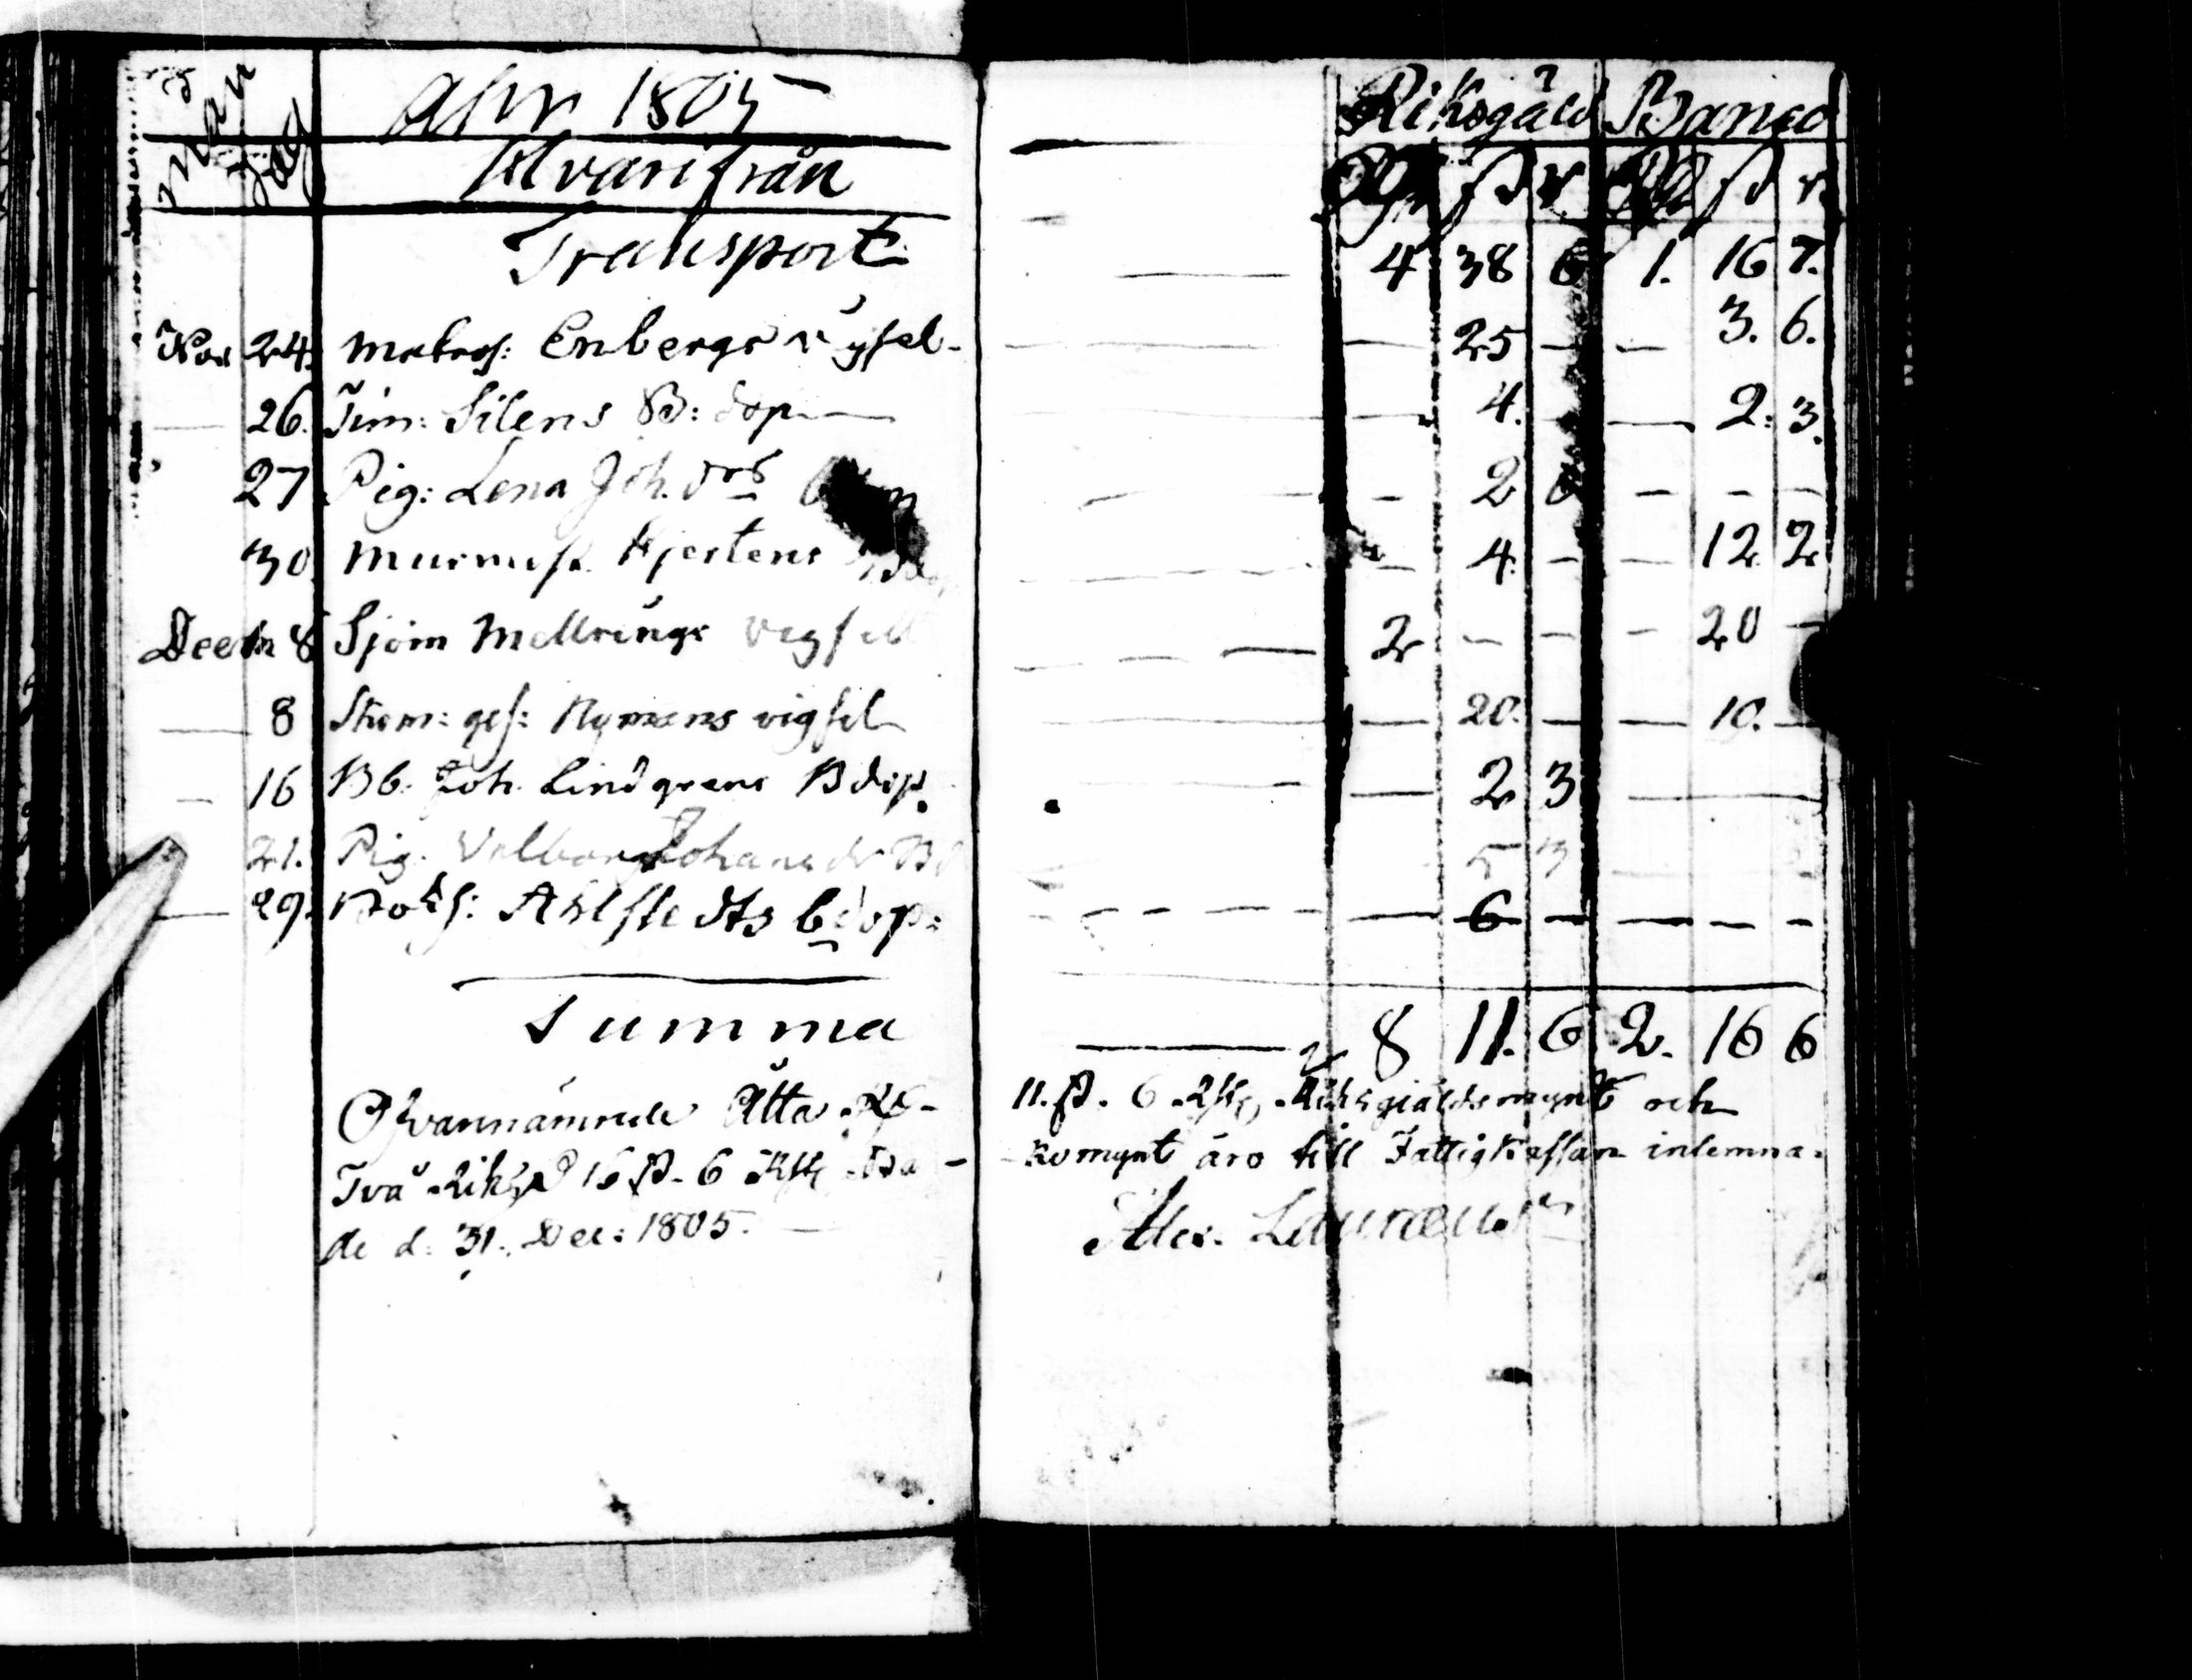 Månad Dag Åhr 1805 Riksgäld Banco
Hvarifrån Rd ß r Rd ß r
Transport — 4 38 6 1. 16 7.
Nov 24. Matros: Enbergs vigsel — — 25 — — 3. 6.
— 26. Tim: Silens B: dop — 4. — 2: 3.
27 Pig: Lena Joh. drs — 2 6 — — —
30. Murmäst. Hjertens — 4. — — 12 2
Decem 8 Sjöm Mellrings vigsel — — — 2 — — — 20 —
— 8 Skom: ges: Nymans vigsel — 20. — — 10. —
— 16 Bb. Joh. Lindgrens Bdop. — — 2 3 —
21. Pig. Valborg Johans dr Bd 5 3
— 29. Ahlstedts bdop: — — — — — 6 — — — —
Summa — 8 11. 6 2. 16 6
Ofvannämnde Åtta Rd 11. ß. 6 rst. Riksgiäldsmynt och
Två Riksd 16 ß. 6 rst Ba- komynt äro till Fattigkassan inlemna-
de d. 31. Dec: 1805. Alex. Lauræus